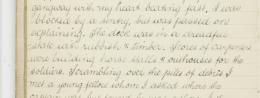 gangway with my heart beating fast, I was
blocked by a sentry, but was passed on
explaining. The dock was in a dreadful
state with rubbish & timber. Scores of carpenters
were building horse stalls & outhouses for the
soldiers. Scrambling over the piles of debris I
met a young fellow whom I asked where the
captain was